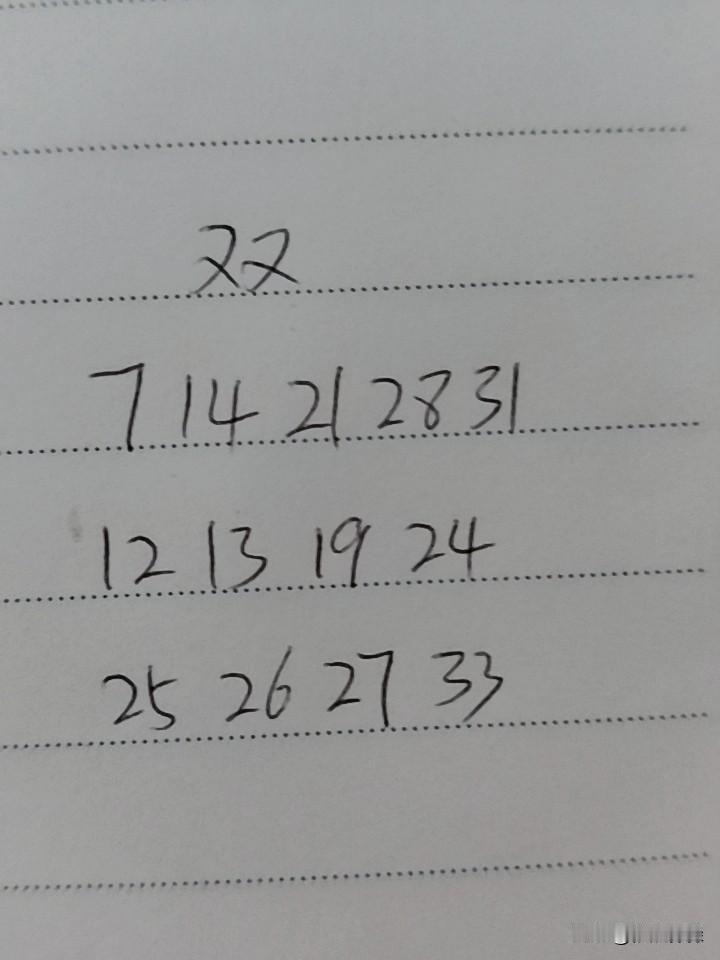 双
7 14 21 28 31
12 13 19 24
25 26 27 33